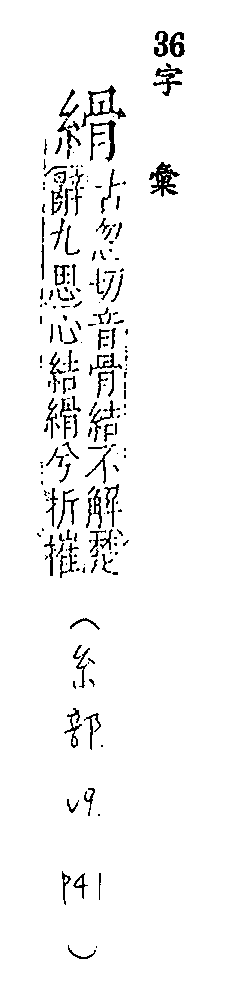 36字彙
縎古忽切音骨結不解楚
辭九思心結縎兮折摧
(糸部. v9. P41)